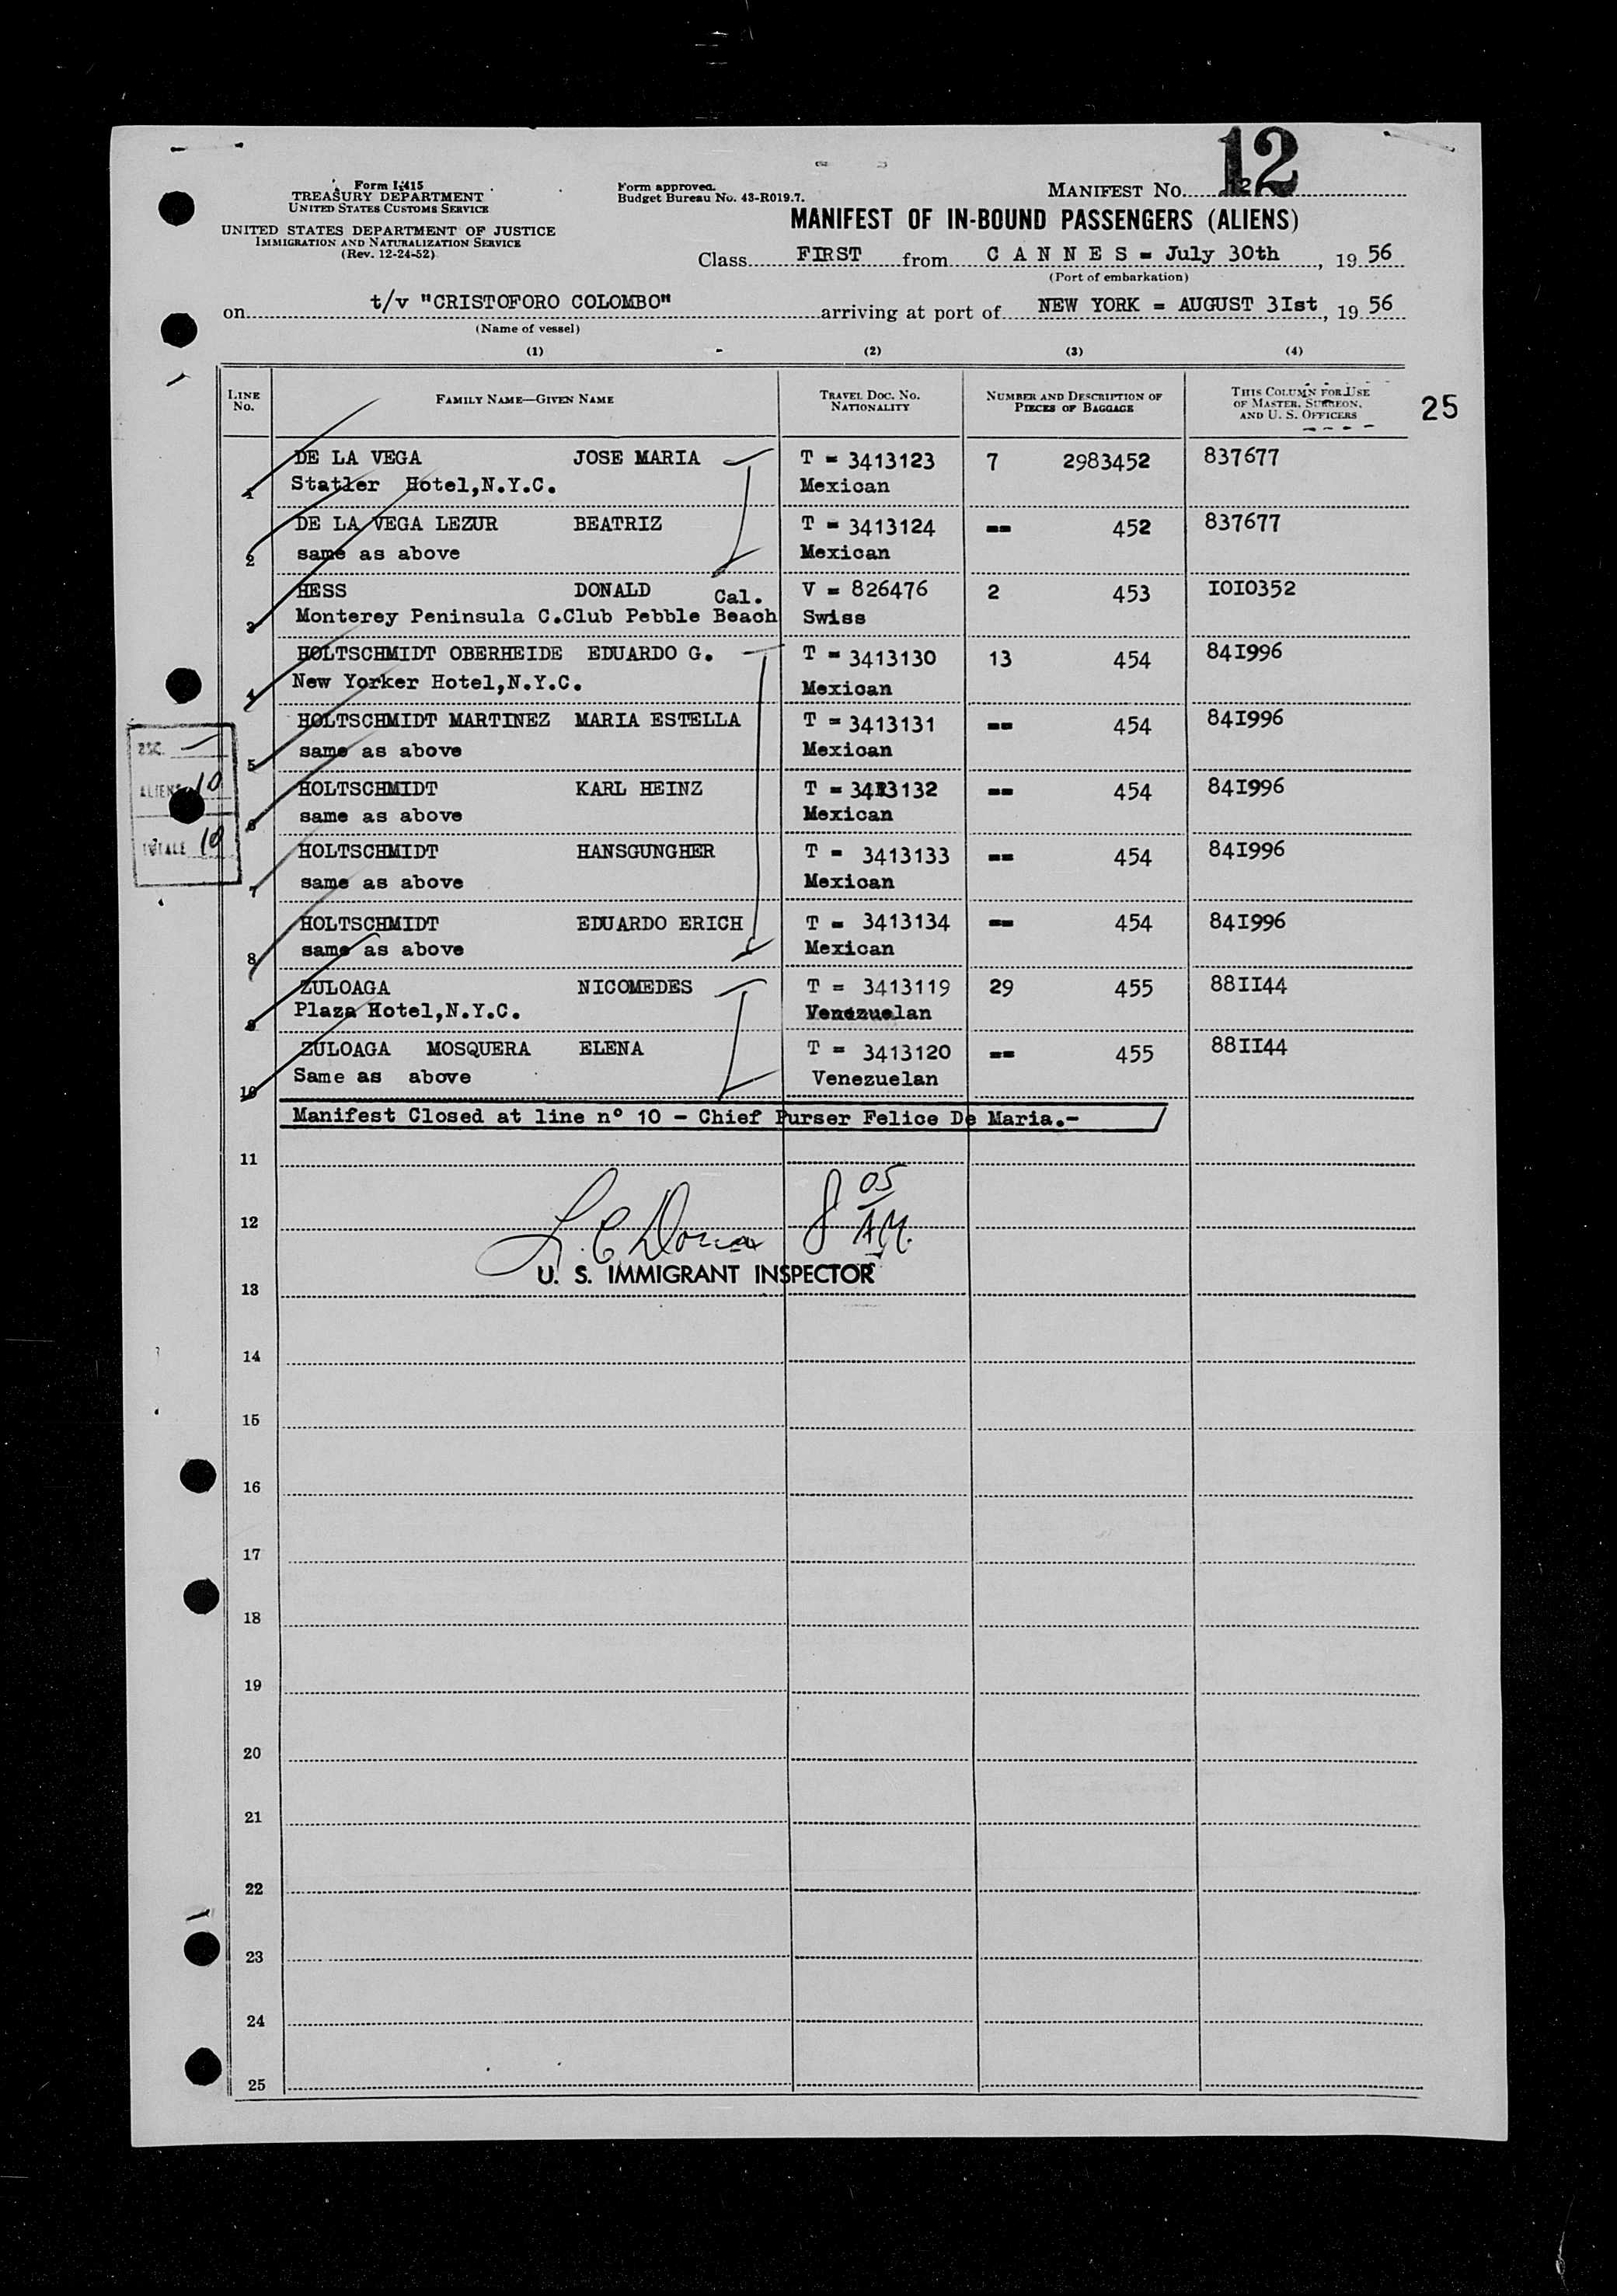 12
Form I-415
TREASURY DEPARTMENT
UNITED STATES CUSTOMS SERVICE
UNITED STATES DEPARTMENT OF JUSTICE
IMMIGRATION AND NATURALIZATION SERVICE
(Rev. 12-24-52)
Form approved.
Budget Bureau No. 43-R019.7.
MANIFEST No. 12
MANIFEST OF IN-BOUND PASSENGERS (ALIENS)
Class FIRST from C A N N E S = July 30th, 19 56
(Port of embarkation)
on t/v "CRISTOFORO COLOMBO" arriving at port of NEW YORK = AUGUST 3Ist, 19 56
(Name of vessel)
(1) (2) (3) (4)
LINE No. FAMILY NAME—GIVEN NAME TRAVEL DOC. No. NATIONALITY NUMBER AND DESCRIPTION OF PIECES OF BAGGAGE THIS COLUMN FOR USE OF MASTER, SURGEON, AND U. S. OFFICERS
25
DE LA VEGA JOSE MARIA T = 3413123 7 2983452 837677
1 Statler Hotel,N.Y.C. Mexican
DE LA VEGA LEZUR BEATRIZ T = 3413124 -- 452 837677
2 same as above Mexican
HESS DONALD Cal. V = 826476 2 453 IOIO352
3 Monterey Peninsula C.Club Pebble Beach Swiss
HOLTSCHMIDT OBERHEIDE EDUARDO G. T = 3413130 13 454 84I996
4 New Yorker Hotel,N.Y.C. Mexican
HOLTSCHMIDT MARTINEZ MARIA ESTELLA T = 3413131 -- 454 84I996
5 same as above Mexican
HOLTSCHMIDT KARL HEINZ T = 3413132 -- 454 84I996
6 same as above Mexican
HOLTSCHMIDT HANSGUNGHER T = 3413133 -- 454 84I996
7 same as above Mexican
HOLTSCHMIDT EDUARDO ERICH T = 3413134 -- 454 84I996
8 same as above Mexican
ZULOAGA NICOMEDES T = 3413119 29 455 88II44
9 Plaza Hotel,N.Y.C. Venezuelan
ZULOAGA MOSQUERA ELENA T = 3413120 -- 455 88II44
10 Same as above Venezuelan
ALIENS 10
TOTALE 10
Manifest Closed at line n° 10 - Chief Purser Felice De Maria.-
11
12
8 05 A.M.
U. S. IMMIGRANT INSPECTOR
13
14
15
16
17
18
19
20
21
22
23
24
25